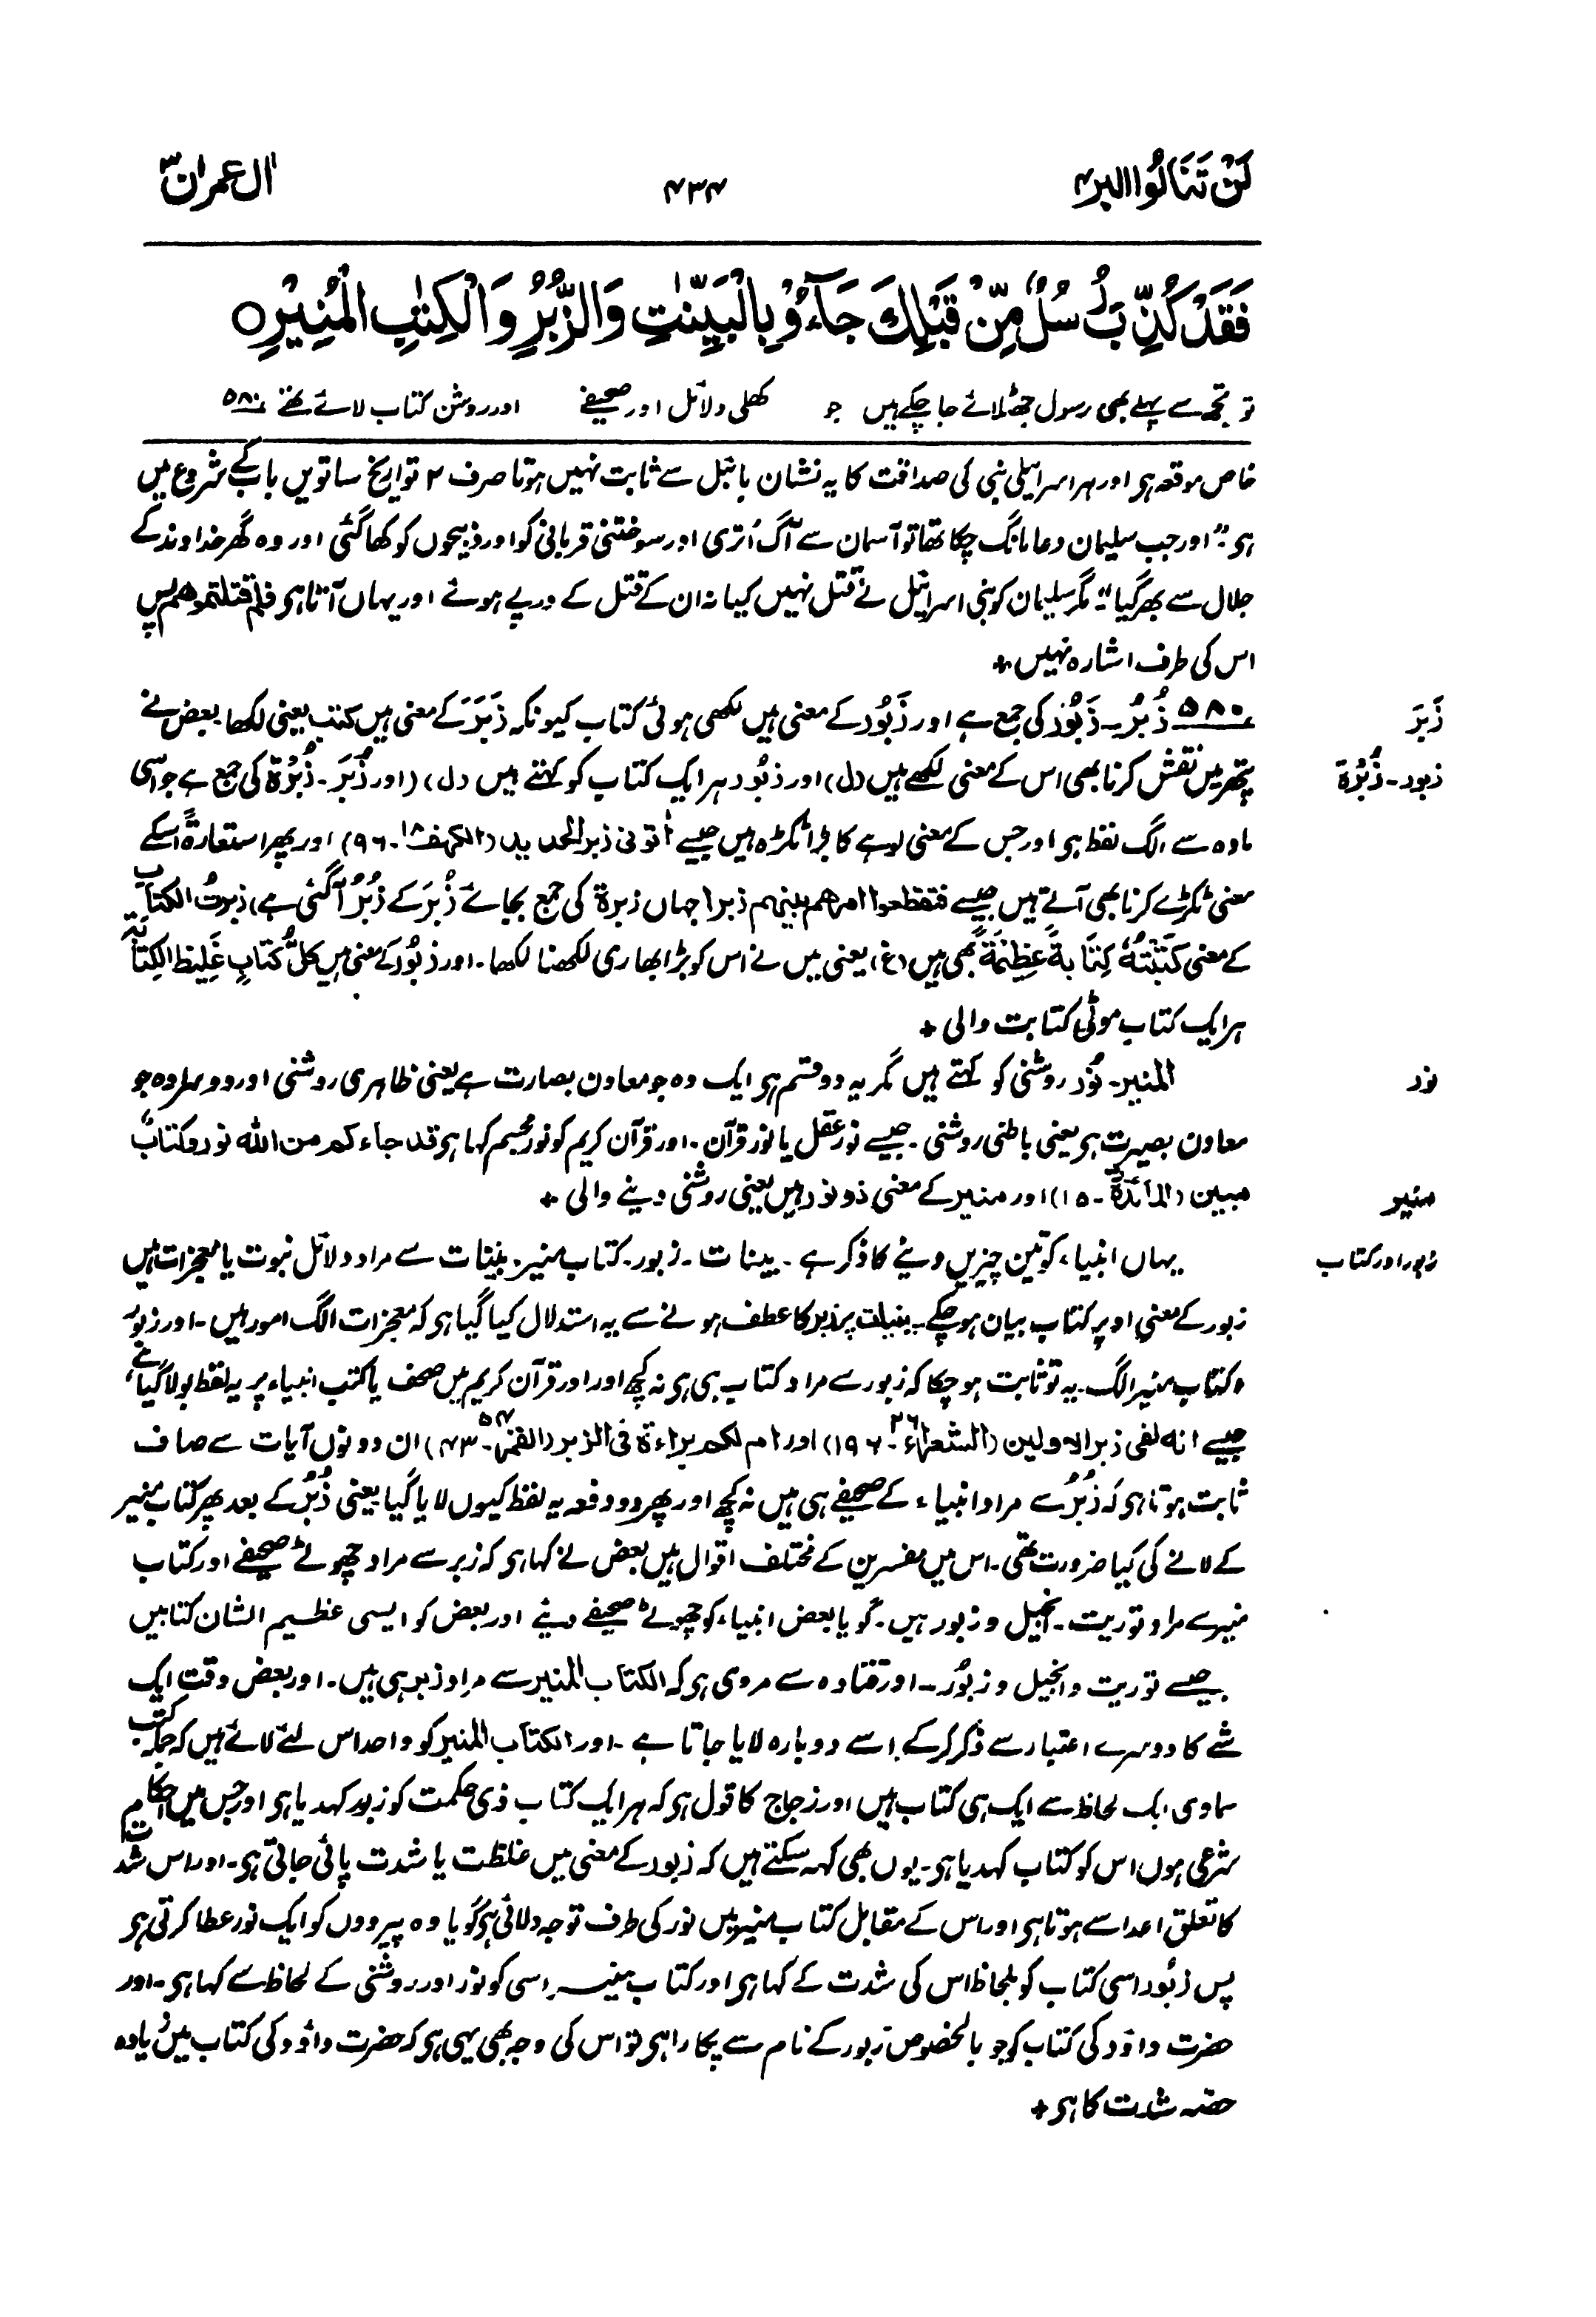 لَنْ تَنَالُوا البر ۴
۴۳۴
اٰل عمران ۳
فَقَدْ كُذِّبَ رُسُلٌ مِّنْ قَبْلِكَ جَآءُوْ بِالْبَيِّنٰتِ وَالزُّبُرِ وَالْكِتٰبِ الْمُنِيْرِ○
تو تجھ سے پہلے بھی رسول جھٹلائے جا چکے ہیں جو کھلی دلائل اور صحیفے اور روشن کتاب لائے تھے ۵۸۰
خاص موقعہ ہی اور ہر اسرائیلی نبی کی صداقت کا یہ نشان بائبل سے ثابت نہیں ہوتا صرف ۲ تواریخ ساتویں باب کے شروع میں
ہی: "اور جب سلیمان دعا مانگ چکا تھا تو آسمان سے آگ اُتری اور سوختنی قربانی کو اور ذبیحوں کو کھا گئی اور وہ گھر خداوند کے
جلال سے بھر گیا" مگر سلیمان کو بنی اسرائیل نے قتل نہیں کیا نہ ان کے قتل کے درپے ہوئے اور یہاں آتا ہی فلم قتلتموهم پس
اس کی طرف اشارہ نہیں +
زَبَرَ
۵۸۰ زُبُرٌ۔ زَبُوْر کی جمع ہے اور زَبُوْر کے معنی ہیں لکھی ہوئی کتاب کیونکہ زَبَرَ کے معنی ہیں کتب یعنی لکھا بعض نے
زبور - زُبْرَة
پتھر میں نقش کرنا بھی اس کے معنی لکھے ہیں (ل) اور زبُور ہر ایک کتاب کو کہتے ہیں (ل) (اور زُبَرَ - زُبْرَة کی جمع ہے جو اسی
مادہ سے الگ لفظ ہی اور جس کے معنی لوہے کا بڑا ٹکڑہ ہیں جیسے اٰتونی زبر الحدید (الکہف ۱۸-۹۶) اور پھر استعارةً اسکے
معنی ٹکڑے کرنا بھی آتے ہیں جیسے فتقطعوا امرهم بينهم زبرا جہاں زبرة کی جمع بجائے زُبَرَ کے زُبُرٌ آ گئی ہے) زبرتُ الکتاب
کے معنی كَتَبْتُهٗ كِتَابَةً عَظِيْمَةً بھی ہیں (غ) یعنی میں نے اس کو بڑا بھاری لکھنا لکھا۔ اور زبُور کے معنی ہیں كلُّ كتابٍ غَليظ الكتابة
ہر ایک کتاب موٹی کتابت والی +
نور
المنير۔ نُوْر روشنی کو کہتے ہیں مگر یہ دو قسم ہی ایک وہ جو معاون بصارت ہے یعنی ظاہری روشنی اور دوسرا وہ جو
معاون بصیرت ہی یعنی باطنی روشنی۔ جیسے نور عقل یا نور قرآن۔ اور قرآن کریم کو نور مجسم کہا ہی قد جاءكم من الله نور وكتابٌ
منير
مبين (المآئدة-۱۵) اور منیر کے معنی ذو نور ہیں یعنی روشنی دینے والی +
زبور اور کتاب
یہاں انبیاء کو تین چیزیں دینے کا ذکر ہے۔ بینات۔ زبور۔ کتاب منیر۔ بینات سے مراد دلائل نبوت یا معجزات ہیں
زبور کے معنی اوپر کتاب بیان ہو چکے۔ بینات پر زبر کا عطف ہونے سے یہ استدلال کیا گیا ہی کہ معجزات الگ امور ہیں۔ اور زبور
و کتاب منیر الگ۔ یہ تو ثابت ہو چکا کہ زبور سے مراد کتاب ہی ہی نہ کچھ اور اور قرآن کریم میں صحف یا کتب انبیاء پر یہ لفظ بولا گیا ہے
جیسے انه لفی زبر الاولين (الشعراء ۲۶-۱۹۶) اور ام لكم براءة فی الزبر (القمر ۵۴-۴۳) ان دونوں آیات سے صاف
ثابت ہوتا ہی کہ زُبُرٌ سے مراد انبیاء کے صحیفے ہی ہیں نہ کچھ اور پھر دو دفعہ یہ لفظ کیوں لایا گیا یعنی زُبُرٌ کے بعد پھر کتاب منیر
کے لانے کی کیا ضرورت تھی۔ اس میں مفسرین کے مختلف اقوال ہیں بعض نے کہا ہی کہ زبر سے مراد چھوٹے صحیفے اور کتاب
منیر سے مراد توریت۔ انجیل و زبور ہیں۔ گویا بعض انبیاء کو چھوٹے صحیفے دیئے اور بعض کو ایسی عظیم الشان کتابیں
جیسے توریت و انجیل و زبُور۔ اور قتادہ سے مروی ہی کہ الکتاب المنیر سے مراد زبر ہی ہیں۔ اور بعض وقت ایک
شے کا دوسرے اعتبار سے ذکر کر کے اسے دوبارہ لایا جاتا ہے۔ اور الکتاب المنیر کو واحد اس لئے لائے ہیں کہ جملہ کتب
سماوی ایک لحاظ سے ایک ہی کتاب ہیں اور زجاج کا قول ہی کہ ہر ایک کتاب ذی حکمت کو زبور کہدیا ہی اور جس میں احکام
شرعی ہوں اس کو کتاب کہدیا ہی۔ یوں بھی کہہ سکتے ہیں کہ زبور کے معنی میں غلظت یا شدت پائی جاتی ہی۔ اور اس شدت
کا تعلق اعدا سے ہوتا ہی اور اس کے مقابل کتاب منیر میں نور کی طرف توجہ دلائی ہی گویا وہ پیرووں کو ایک نور عطا کرتی ہی
پس زبُور اسی کتاب کو بلحاظ اس کی شدت کے کہا ہی اور کتاب منیر اسی کو نور اور روشنی کے لحاظ سے کہا ہی۔ اور
حضرت داؤد کی کتاب کو جو بالخصوص زبور کے نام سے پکارا ہی تو اس کی وجہ بھی یہی ہی کہ حضرت داؤد کی کتاب میں زیادہ
حصہ شدت کا ہی +